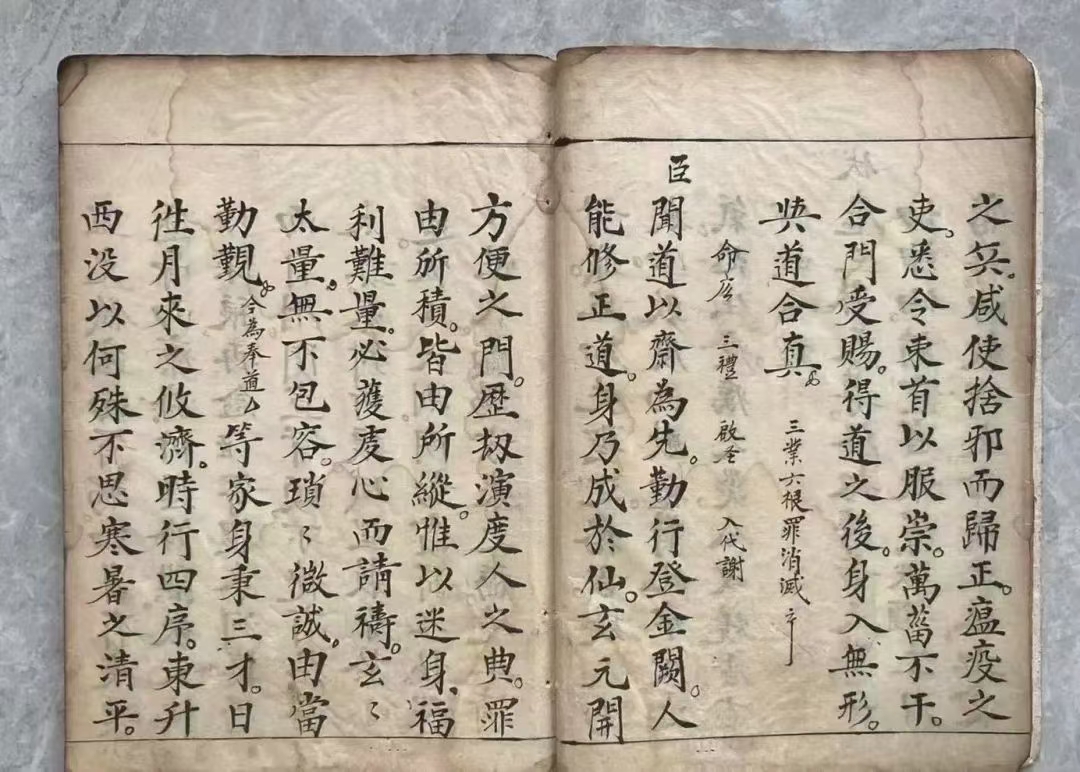 之兵。咸使捨邪而歸正。瘟疫之
吏。悉令束首以服崇。萬畨不干。
合門受賜。得道之後。身入無形。
與道合真。 三業六根罪消滅
命 三禮 啟圣 入代謝
臣
聞道以齋為先。勤行登金闕。人
能修正道。身乃成於仙。玄元開
方便之門。歷劫演度人之典。罪
由所積。皆由所縱。惟以迷身、福
利難量。必獲虔心而請禱。玄〻
太量。無不包容。瑣〻微誠。由當
勤觀。今為奉道厶等家身秉三才。日
徃月來之攸濟。時行四序。東升
西没以何殊不思寒暑之清平。